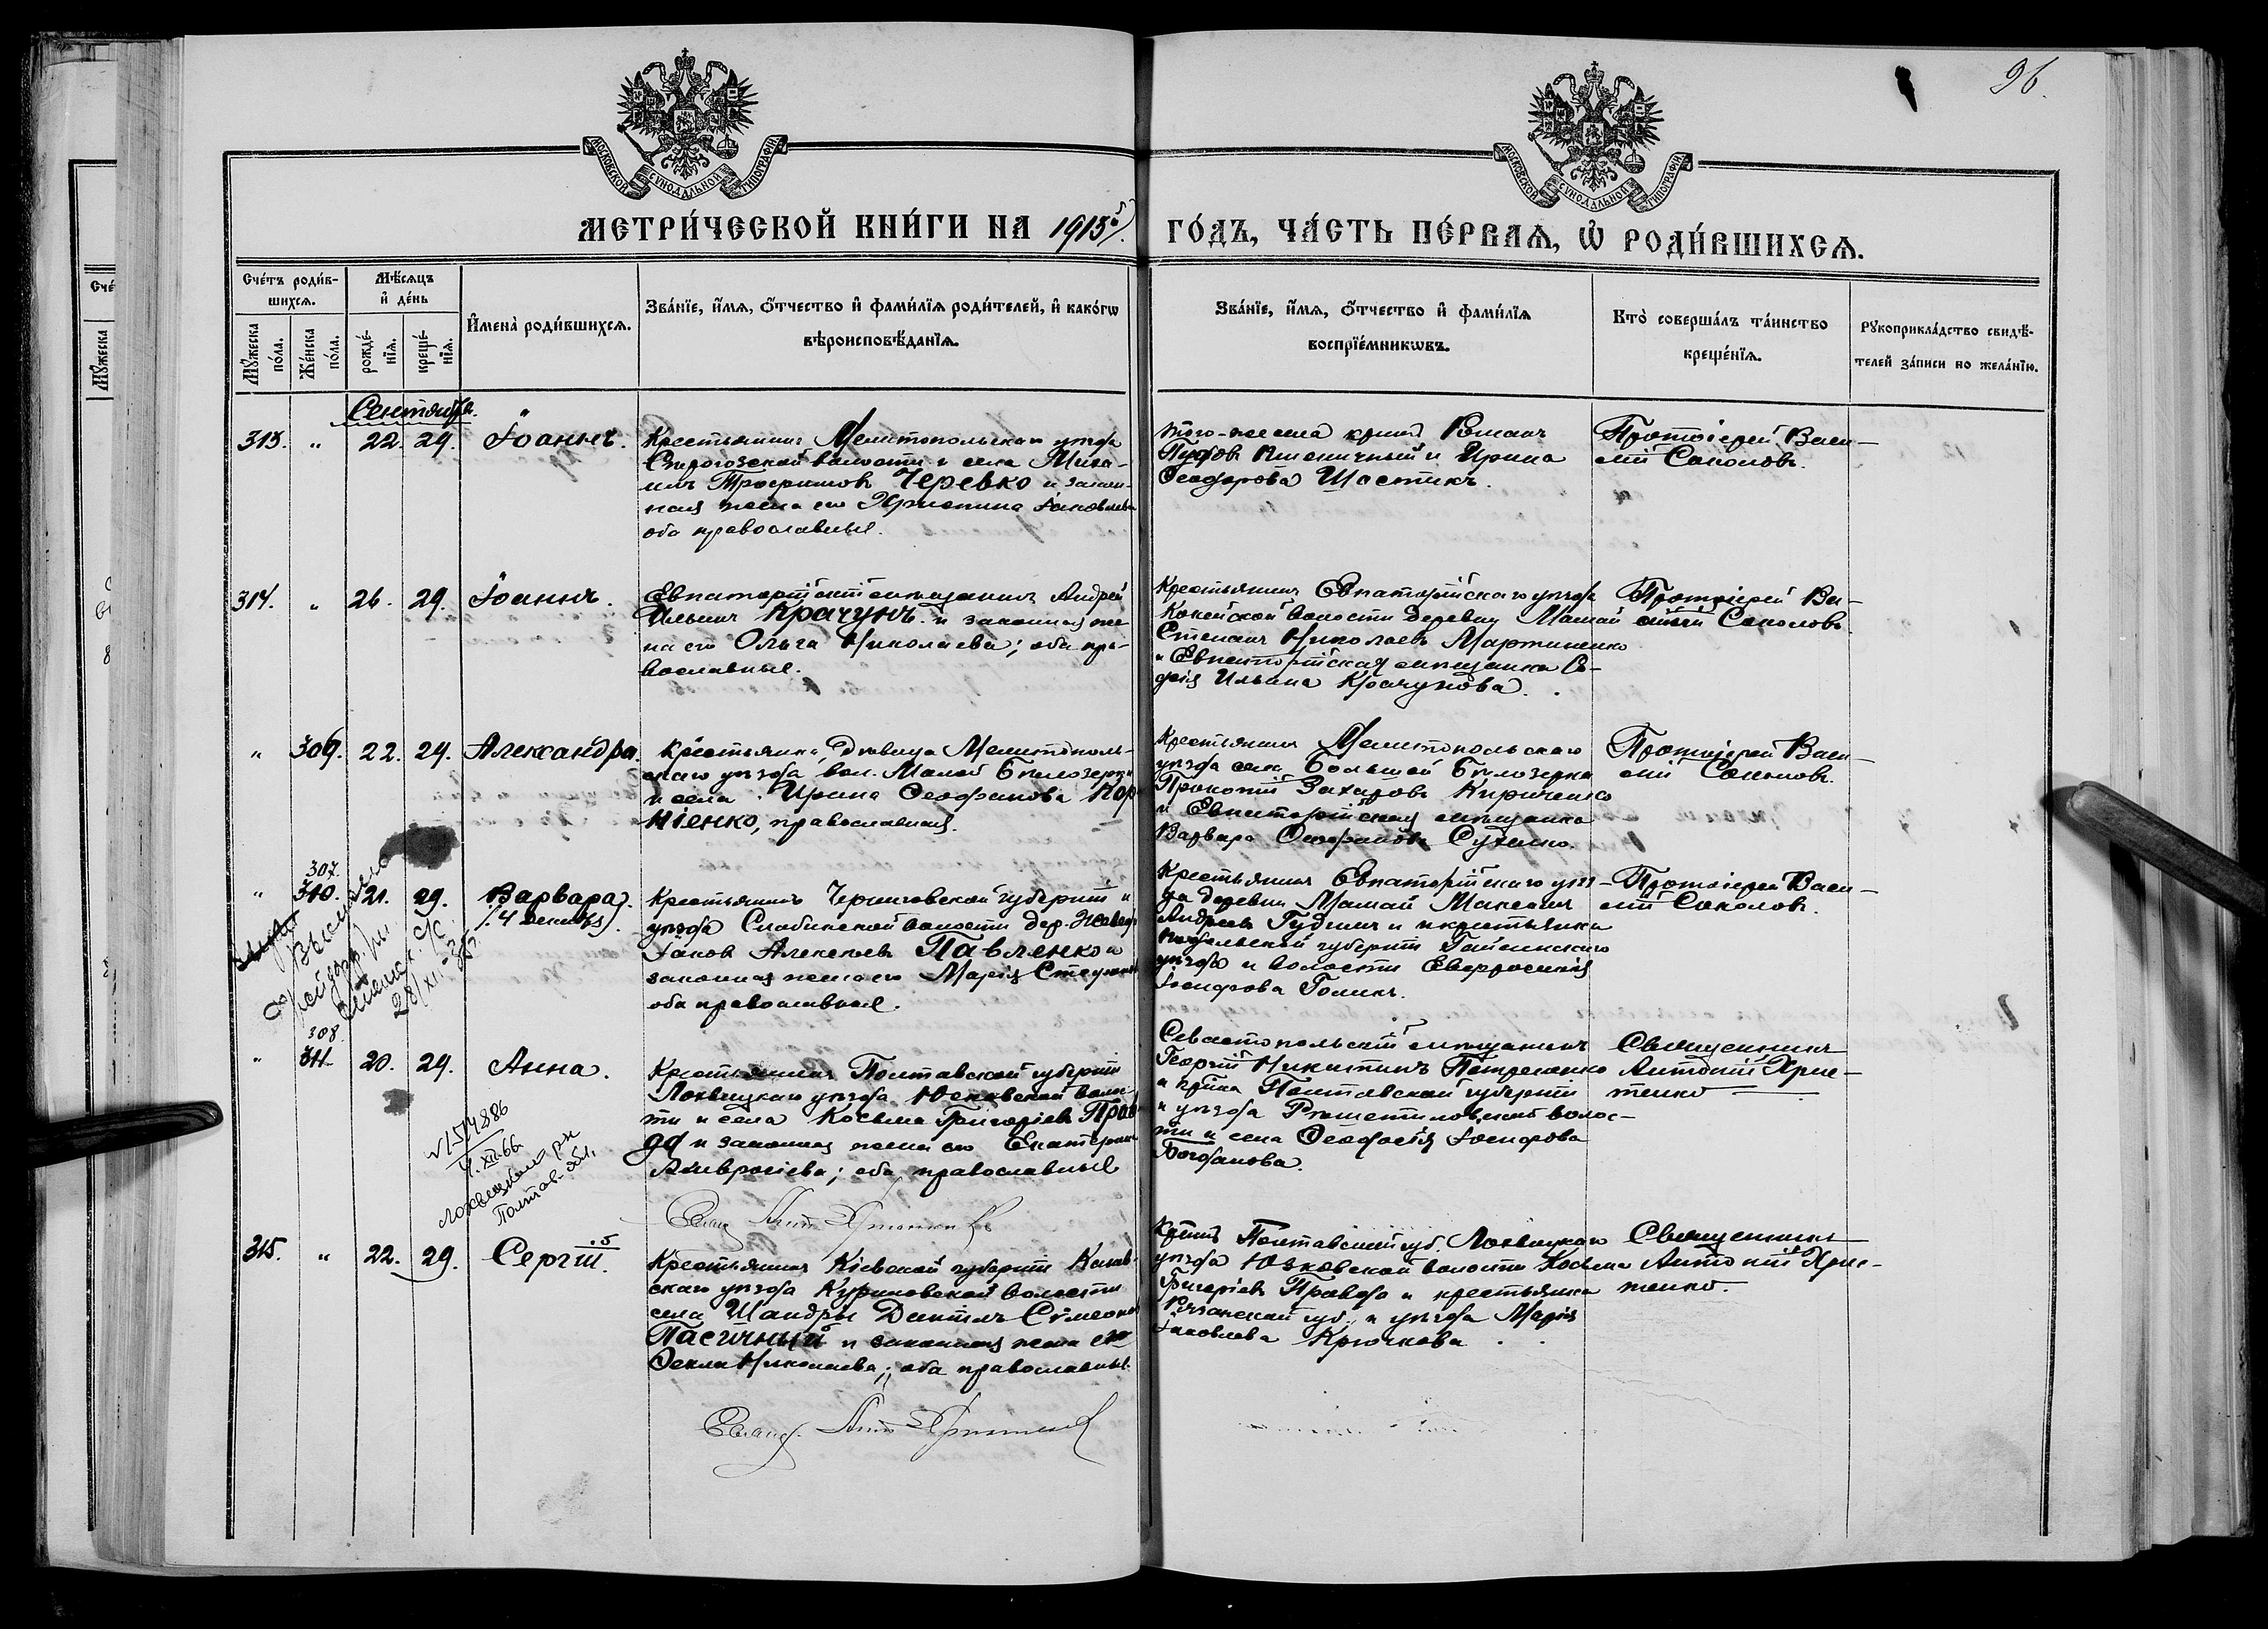 96.
МОСКОВСКОЙ СѴНОДАЛЬНОЙ ТИПОГРАФІИ
МОСКОВСКОЙ СѴНОДАЛЬНОЙ ТИПОГРАФІИ
МЕТРИ́ЧЕСКОЙ КНИ́ГИ НА 1915 ГО́ДЪ, ЧА́СТЬ ПЕ́РВАѦ, Ѽ РОДИ́ВШИХСѦ.
Сче́тъ роди́в-
шихсѧ.
Мѣ́сѧцъ
и҆ де́нь
Мꙋ́жеска
по́ла.
Же́нска
по́ла.
рожде́-
нїѧ.
креще́-
нїѧ.
И҆мена̀ роди́вшихсѧ.
Зва́нїе, и҆́мѧ, ѻ҆́тчество и҆ фами́лїѧ роди́телей, и҆ како́гѡ
вѣроисповѣ́данїѧ.
Зва́нїе, и҆́мѧ, ѻ҆́тчество и҆ фами́лїѧ
воспрїе́мникѡвъ.
Кто̀ соверша́лъ та́инство
креще́нїѧ.
Рꙋкоприкла́дство свидѣ́-
телей за́писи по жела́нїю.
Сентября.
313. " 22. 29. Іоаннъ.
Крестьянинъ Мелитопольскаго уѣзда
волости и села Миха-
илъ Трофимовъ Черевко и закон-
ная жена его Христина Іаковлева
оба православные.
того-же села Романъ
Пшеничный и Ирина
Ѳеодорова Шостикъ.
Протоіерей Васи-
лій Соколовъ.
314. " 26. 29. Іоаннъ.
Евпаторійскій мѣщанинъ Андрей
Ильинъ Крачунъ и законная же
на его Ольга Николаева; оба пра-
вославные.
Крестьянинъ Евпаторійскаго уѣзда
волости деревни Мамай
Стефанъ Николаевъ Мартиненко
и Евпаторійская мѣщанка Со-
фія Ильина Крачунова.
Протоіерей Ва-
силій Соколовъ
" 309. 22. 29. Александра.
Крестьянка, дѣвица Мелитополь-
скаго уѣзда вол. Малой Бѣлозерки
и села Ирина Ѳеофанова Кор
ніенко, православная.
Крестьянинъ Мелитопольскаго
уѣзда села Большой Бѣлозерки
Прокопій Захаровъ Кириченко
и Евпаторійская мѣщанка
Варвара Сухенко.
Протоіерей Васи-
лій Соколовъ.
307.
" 310. 21. 29. Варвара.
(4 Декабря).
Крестьянинъ Черниговской губерніи и
уѣзда Слабинской волости дер.
Іаковъ Алексѣевъ Павленко и
законная жена его Марія
оба православные.
Крестьянинъ Евпаторійскаго уѣз-
да деревни Мамай Максимъ
Андреевъ и крестьянка
Подольской губерніи Гайсинскаго
уѣзда и волости Евфросинія
Іосифова Голикъ.
Протоіерей Васи-
лій Соколовъ.
Выслано
28/XII-35
308.
" 311. 20. 29. Анна.
Крестьянинъ Полтавской губерніи
Лохвицкаго уѣзда Юсковской волос-
ти и села Косьма Григоріевъ Прав
да и законная жена его Екатерина
Амвросіева; оба православные
Севастопольскій мѣщанинъ
Георгій Никитинъ Петренко
и Полтавской губерніи
и уѣзда Рѣшетиловской волос-
ти и села Ѳеодосія Іосифова
Богданова.
Священникъ
Антоній Хрис-
тенко
154886
9.XII.66
Лохвицкого рн
Полтав. обл.
315. " 22. 29. Сергій.
Крестьянинъ Кіевской губерніи Канев-
скаго уѣзда Куриловской волости
села Шандры Даніилъ Сѵмеоновъ
Пасичный и законная жена его
Ѳекла Николаева; оба православные.
Полтавской губ. Лохвицкаго
уѣзда Юсковской волости Косьма
Григоріевъ Правда и крестьянка
Рязанской губ. и уѣзда Марія
Іаковлева Крючкова
Священникъ
Антоній Хрис-
тенко.